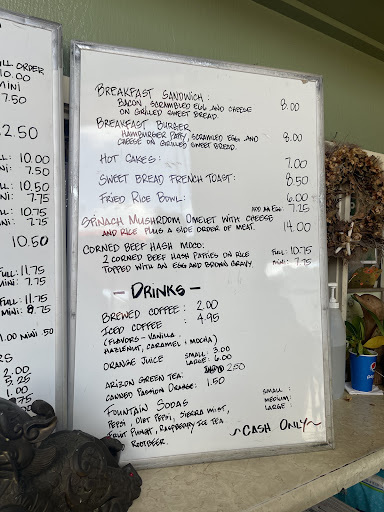 ILL ORDER
10.00
MINI
7.50
2.50
LL: 10.00
NI: 7.50
LL: 10.50
NI: 7.75
LL: 10.75
NI: 7.75
10.50
FULL: 11.75
MINI: 7.75
FULL: 11.75
MINI: 8.75
1.00 MINI .50
RS
2.00
5.25
1.00
BREAKFAST SANDWICH:
BACON, SCRAMBLED EGG AND CHEESE 8.00
ON GRILLED SWEET BREAD.
BREAKFAST BURGER
HAMBURGER PATTY, SCRAMBLED EGG AND 8.00
CHEESE ON GRILLED SWEET BREAD.
HOT CAKES: 7.00
SWEET BREAD FRENCH TOAST: 8.50
FRIED RICE BOWL: 6.00
ADD AN EGG: 7.25
SPINACH MUSHROOM OMELET WITH CHEESE
AND RICE PLUS A SIDE ORDER OF MEAT. 14.00
CORNED BEEF HASH MOCO:
2 CORNED BEEF HASH PATTIES ON RICE FULL: 10.75
TOPPED WITH AN EGG AND BROWN GRAVY. MINI: 7.75
- DRINKS -
BREWED COFFEE: 2.00
ICED COFFEE: 4.95
(FLAVORS - VANILLA,
HAZLENUT, CARAMEL, MOCHA)
ORANGE JUICE SMALL: 3.00
LARGE: 6.00
ARIZON GREEN TEA: 2.50
CANNED PASSION ORANGE: 1.50
FOUNTAIN SODAS SMALL:
PEPSI, DIET PEPSI, SIERRA MIST, MEDIUM:
FRUIT PUNCH, RASPBERRY ICE TEA LARGE:
ROOTBEER.
~CASH ONLY~
pepsi